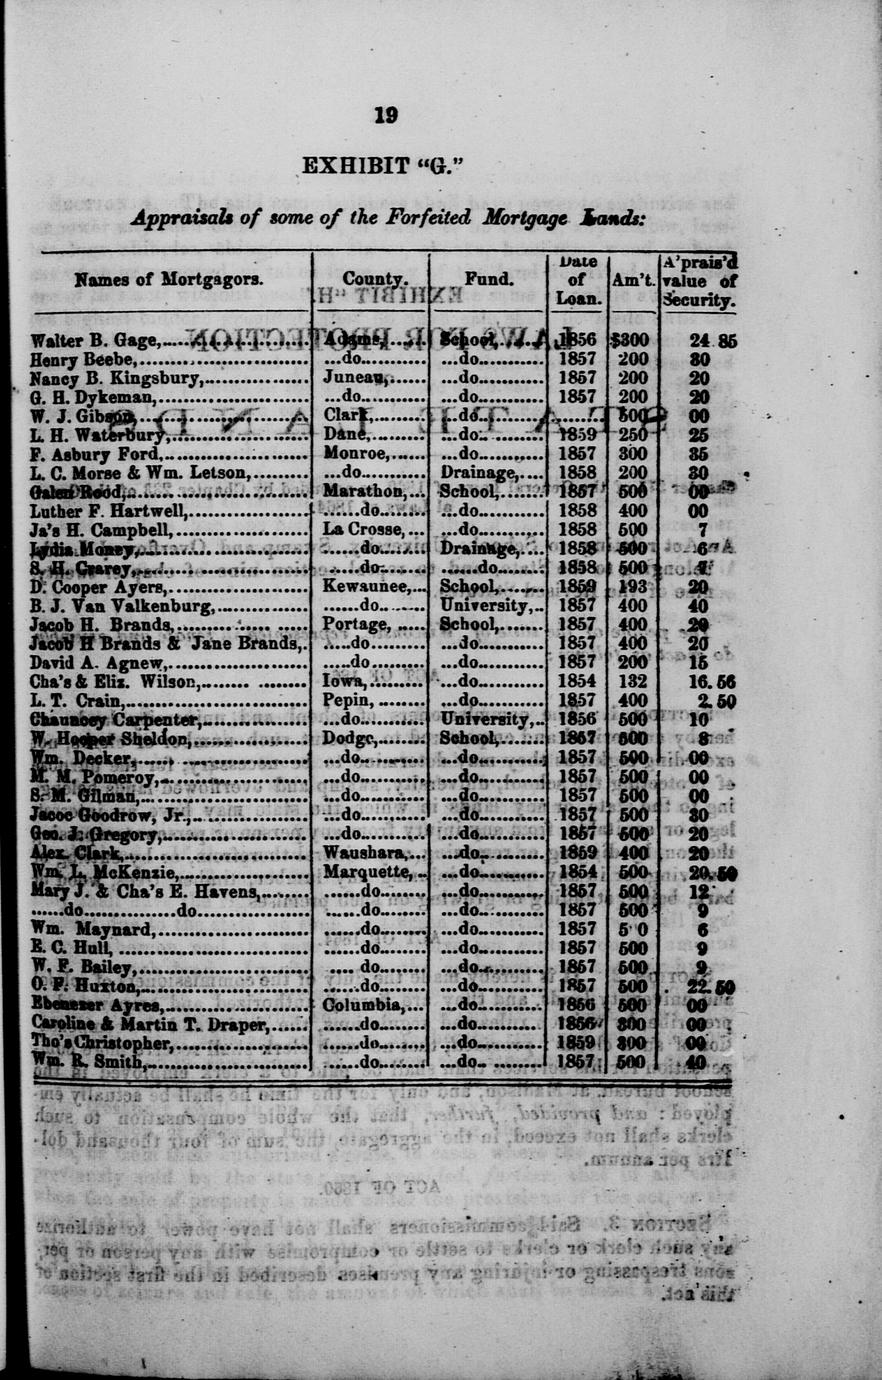 19
EXHIBIT "G."
Appraisals of some of the Forfeited Mortgage Lands:
Names of Mortgagors. County. Fund. Date of Loan. Am't. A'prais'd value of Security.
Walter B. Gage,..... Adams,..... School,..... 1856 $300 24 85
Henry Beebe,..... ...do..... ...do..... 1857 200 80
Nancy B. Kingsbury,..... Juneau,..... ...do..... 1857 200 20
G. H. Dykeman,..... ...do..... ...do..... 1857 200 20
W. J. Gibson,..... Clark,..... ...do..... 500 00
L. H. Waterbury,..... Dane,..... ...do..... 1859 250 25
F. Asbury Ford,..... Monroe,..... ...do..... 1857 300 35
L. C. Morse & Wm. Letson,..... ...do..... Drainage,.... 1858 200 30
Galen Rood,..... Marathon,... School,..... 1857 500 00
Luther F. Hartwell,..... ......do..... ...do..... 1858 400 00
Ja's H. Campbell,..... La Crosse,... ...do..... 1858 500 7
Lydia Money,..... ......do..... Drainage,.... 1858 500 6
S. H. Crarey,..... ......do..... ......do..... 1858 500
D. Cooper Ayers,..... Kewaunee,... School,..... 1859 193 20
B. J. Van Valkenburg,..... ......do..... University,.. 1857 400 40
Jacob H. Brands,..... Portage,..... School,..... 1857 400 20
Jacob H Brands & Jane Brands,. .....do..... ...do..... 1857 400 20
David A. Agnew,..... .....do..... ...do..... 1857 200 15
Cha's & Eliz. Wilson,..... Iowa,..... ...do..... 1854 132 16.56
L. T. Crain,..... Pepin,..... ...do..... 1857 400 2.50
Chauncey Carpenter,..... ...do..... University,.. 1856 500 10
W. Hooper Sheldon,..... Dodge,..... School,..... 1857 800 8
Wm. Decker,..... ...do..... ...do..... 1857 500 00
M. M. Pomeroy,..... ...do..... ...do..... 1857 500 00
S. M. Gilman,..... ...do..... ...do..... 1857 500 00
Jacoc Goodrow, Jr.,..... ...do..... ...do..... 1857 500 80
Geo. J. Gregory,..... ...do..... ...do..... 1857 500 20
Alex. Clark,..... Waushara,... ...do..... 1859 400 20
Wm. L. McKenzie,..... Marquette,.. ...do..... 1854 500 20.50
Mary J. & Cha's E. Havens,..... ......do..... ...do..... 1857 500 12
......do...............do..... ......do..... ...do..... 1857 500 9
Wm. Maynard,..... ......do..... ...do..... 1857 5 0 6
E. C. Hull,..... ......do..... ...do..... 1857 500 9
W. F. Bailey,..... .... do..... ...do..... 1857 500 9
O. F. Huxton,..... ......do..... ...do..... 1857 500 22.50
Ebenezer Ayres,..... Columbia,... ...do..... 1856 500 00
Caroline & Martin T. Draper,..... ......do..... ...do..... 1856 800 00
Tho's Christopher,..... ......do..... ...do..... 1859 800 00
Wm. R. Smith,..... ......do..... ...do..... 1857 500 40